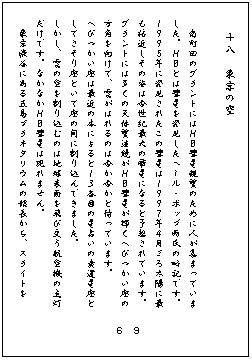 十八　東京の空
南町田のグラントにはHB彗星観覧のために人が集まっていま
した。HBとは彗星を発見したヘール・ボップ両氏の略記です。
1995年に発見されたこの彗星は1997年4月ごろ太陽に最
も接近しその姿は今世紀最大の彗星になると予想されています。
グラントには多くの天体望遠鏡がHB彗星が輝くへびつかい座の
方角を向けて、雲がはれるのは今か今かと待っています。
へびつかい座は最近の本によると13番目の星占いの黄道星座と
してさそり座といて座の間に割り込んできました。
しかし、雲の空を割り込むのは地球表面を飛び交う航空機の主灯
だけです。なかなかHB彗星は現れません。
東京渋谷にある五島プラネタリウムの館長から、スライトを
69